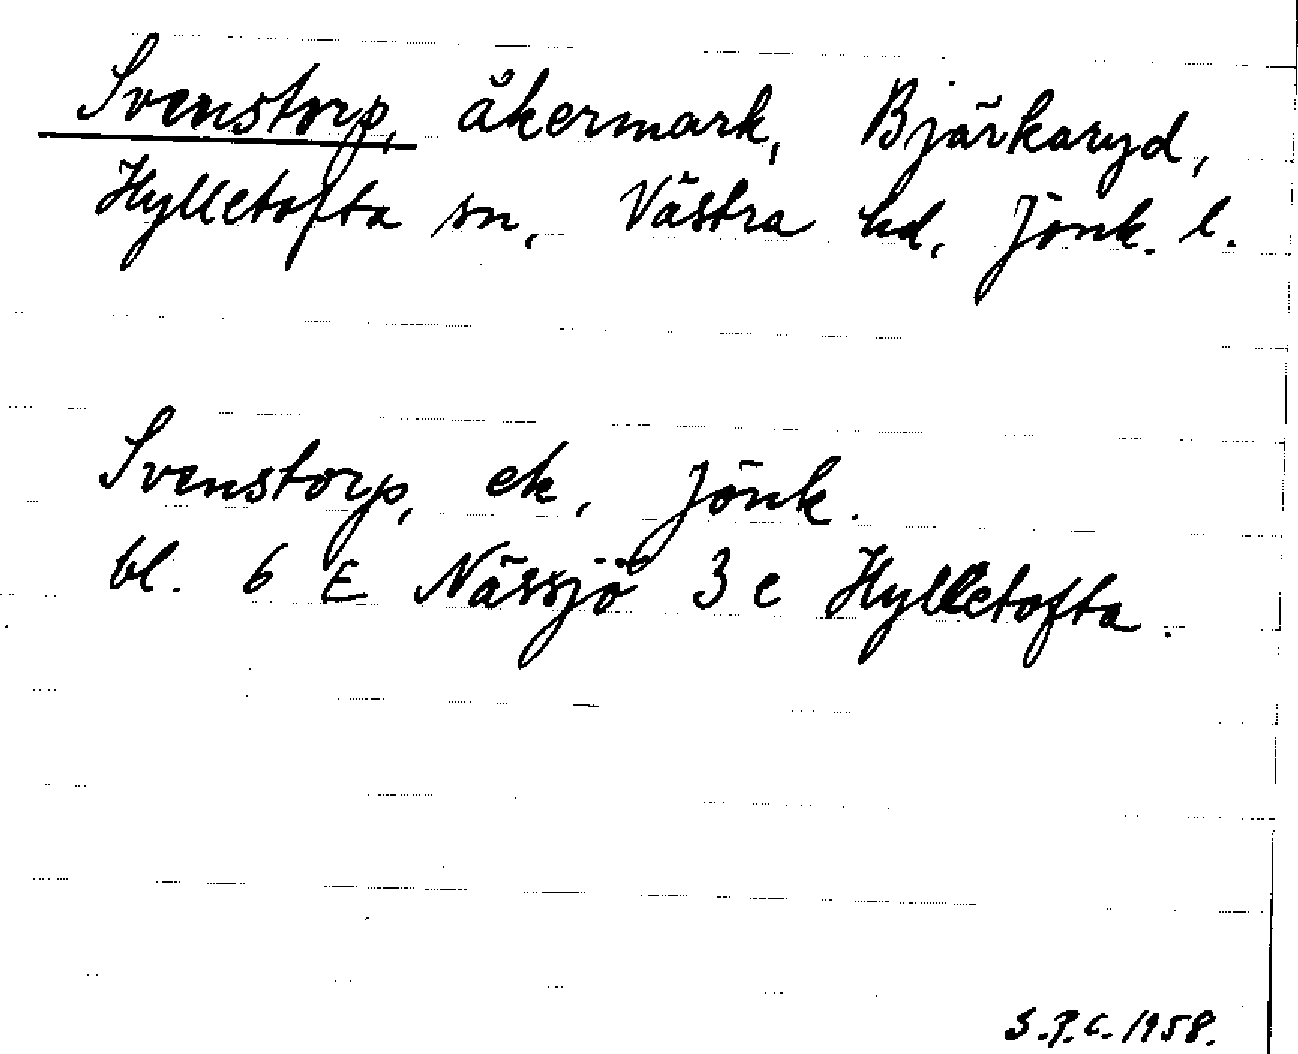 Svenstorp, åkermark, Bjärkaryd,
Hylletofta sn, Västra hd, Jönk. l.
Svenstorp, ek, Jönk.
bl. 6 E Nässjö 3 e Hylletofta.
S.P.C. 1958.